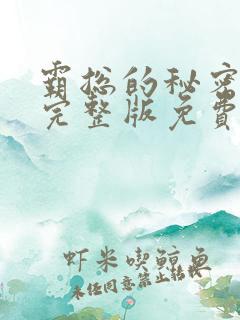 霸总的秘密
完整版免费
虾米喫鲸鱼
未经同意禁止转载